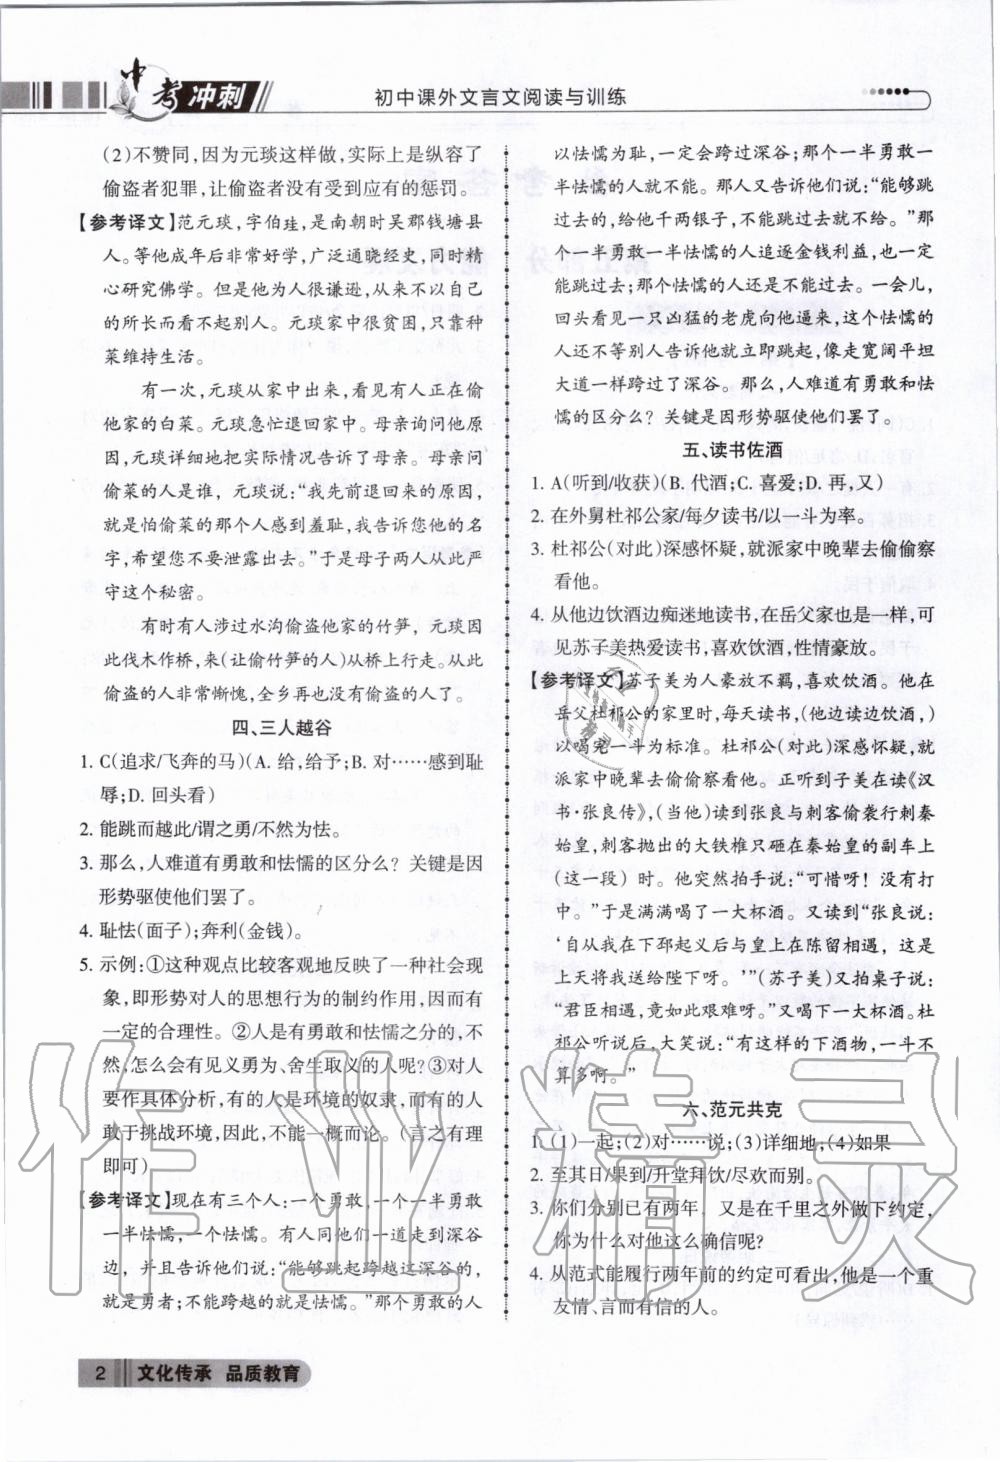 中考冲刺
初中课外文言文阅读与训练
(2)不赞同,因为元琰这样做,实际上是纵容了
偷盗者犯罪,让偷盗者没有受到应有的惩罚。
【参考译文】范元琰,字伯珪,是南朝时吴郡钱塘县
人。等他成年后非常好学,广泛通晓经史,同时精
心研究佛学。但是,他为人很谦逊,从来不以自己
的所长而看不起别人。元琰家中很贫困,只靠种
菜维持生活。
有一次,元琰从家中出来,看见有人正在偷
他家的白菜。元琰急忙退回家中。母亲询问他原
因,元琰详细地把实际情况告诉了母亲。母亲问
偷菜的人是谁,元琰说:“我先前退回来的原因,
就是怕偷菜的那个人感到羞耻,我告诉您他的名
字,希望您不要泄露出去。”于是母子两人从此严
守这个秘密。
有时有人涉过水沟偷盗他家的竹笋,元琰因
此伐木作桥,来(让偷竹笋的人)从桥上行走。从此
偷盗的人非常惭愧,全乡再也没有偷盗的人了。
四、三人越谷
1. C(追求/飞奔的马)(A. 给,给予;B. 对……感到耻
辱;D. 回头看)
2. 能跳而越此/谓之勇/不然为怯。
3. 那么,人难道有勇敢和怯懦的区分么？关键是因
形势驱使他们罢了。
4. 耻怯(面子);奔利(金钱)。
5. 示例:①这种观点比较客观地反映了一种社会现
象,即形势对人的思想行为的制约作用,因而有
一定的合理性。②人是有勇敢和怯懦之分的,不
然,怎么会有见义勇为、舍生取义的人呢?③对人
要作具体分析,有的人是环境的奴隶,而有的人
敢于挑战环境,因此,不能一概而论。(言之有理
即可)
【参考译文】现在有三个人:一个勇敢,一个一半勇敢
一半怯懦,一个怯懦。有人同他们一道走到深谷
边,并且告诉他们说:“能够跳起跨越这深谷的,
就是勇者;不能跨越的就是怯懦。”那个勇敢的人
以怯懦为耻,一定会跨过深谷;而一半勇敢一
半怯懦的人就不能。那人又告诉他们说:“能够跳
过去的,给他千两银子,不能跳过去就不给。”那
个一半勇敢一半怯懦的人追逐金钱利益,一定
能跳过去;而那怯懦的人还是不能过去。一会儿,
回头看见一只凶猛的老虎向他逼来,这个怯懦的
人还不等别人告诉他就立即跳起,像走宽阔平坦
大道一样跨过了深谷。那么,人难道有勇敢和怯
懦的区分么？关键是因形势驱使他们罢了。
五、读书佐酒
1. A(听到/收获)(B. 代酒;C. 喜爱;D. 再,又)
2. 在外舅杜祁公家/每夕读书/以一斗为率。
3. 杜祁公(对此)深感怀疑,就派家中晚辈去偷偷察
看他。
4. 从他边饮酒边痴迷地读书,在岳父家也是一样,可
见苏子美热爱读书,喜欢饮酒,性情豪放。
【参考译文】苏子美为人豪放不羁,喜欢饮酒。他在
岳父杜祁公的家里时,每天读书,(他边读边饮酒,)
以喝完一斗为标准。杜祁公(对此)深感怀疑,就
派家中晚辈去偷偷察看他。正听到子美在读《汉
书·张良传》,(当他)读到张良与刺客偷袭行刺秦
始皇,刺客抛出的大铁椎只砸在秦始皇的副车上
(这一段)时。他突然拍手说:“可惜呀！没有打
中。”于是满满喝了一大杯酒。又读到“张良说:
‘自从我在下邳起义后与皇上在陈留相遇,这是
上天将我送给陛下呀。’”(苏子美)又拍桌子说:
“君臣相遇,竟如此艰难呀。”又喝下一大杯酒。杜
祁公听说后,大笑说:“有这样的下酒物,一斗不
算多啊。”
六、范元共克
1. (1)一起;(2)对……说;(3)详细地;(4)如果
2. 至其日/果到/升堂拜饮/尽欢而别。
3. 你们分别已有两年,又是在千里之外做下约定,
你为什么对他这么确信呢?
4. 从范式能履行两年前的约定可看出,他是一个重
友情、言而有信的人。
2 文化传承 品质教育
作业精灵